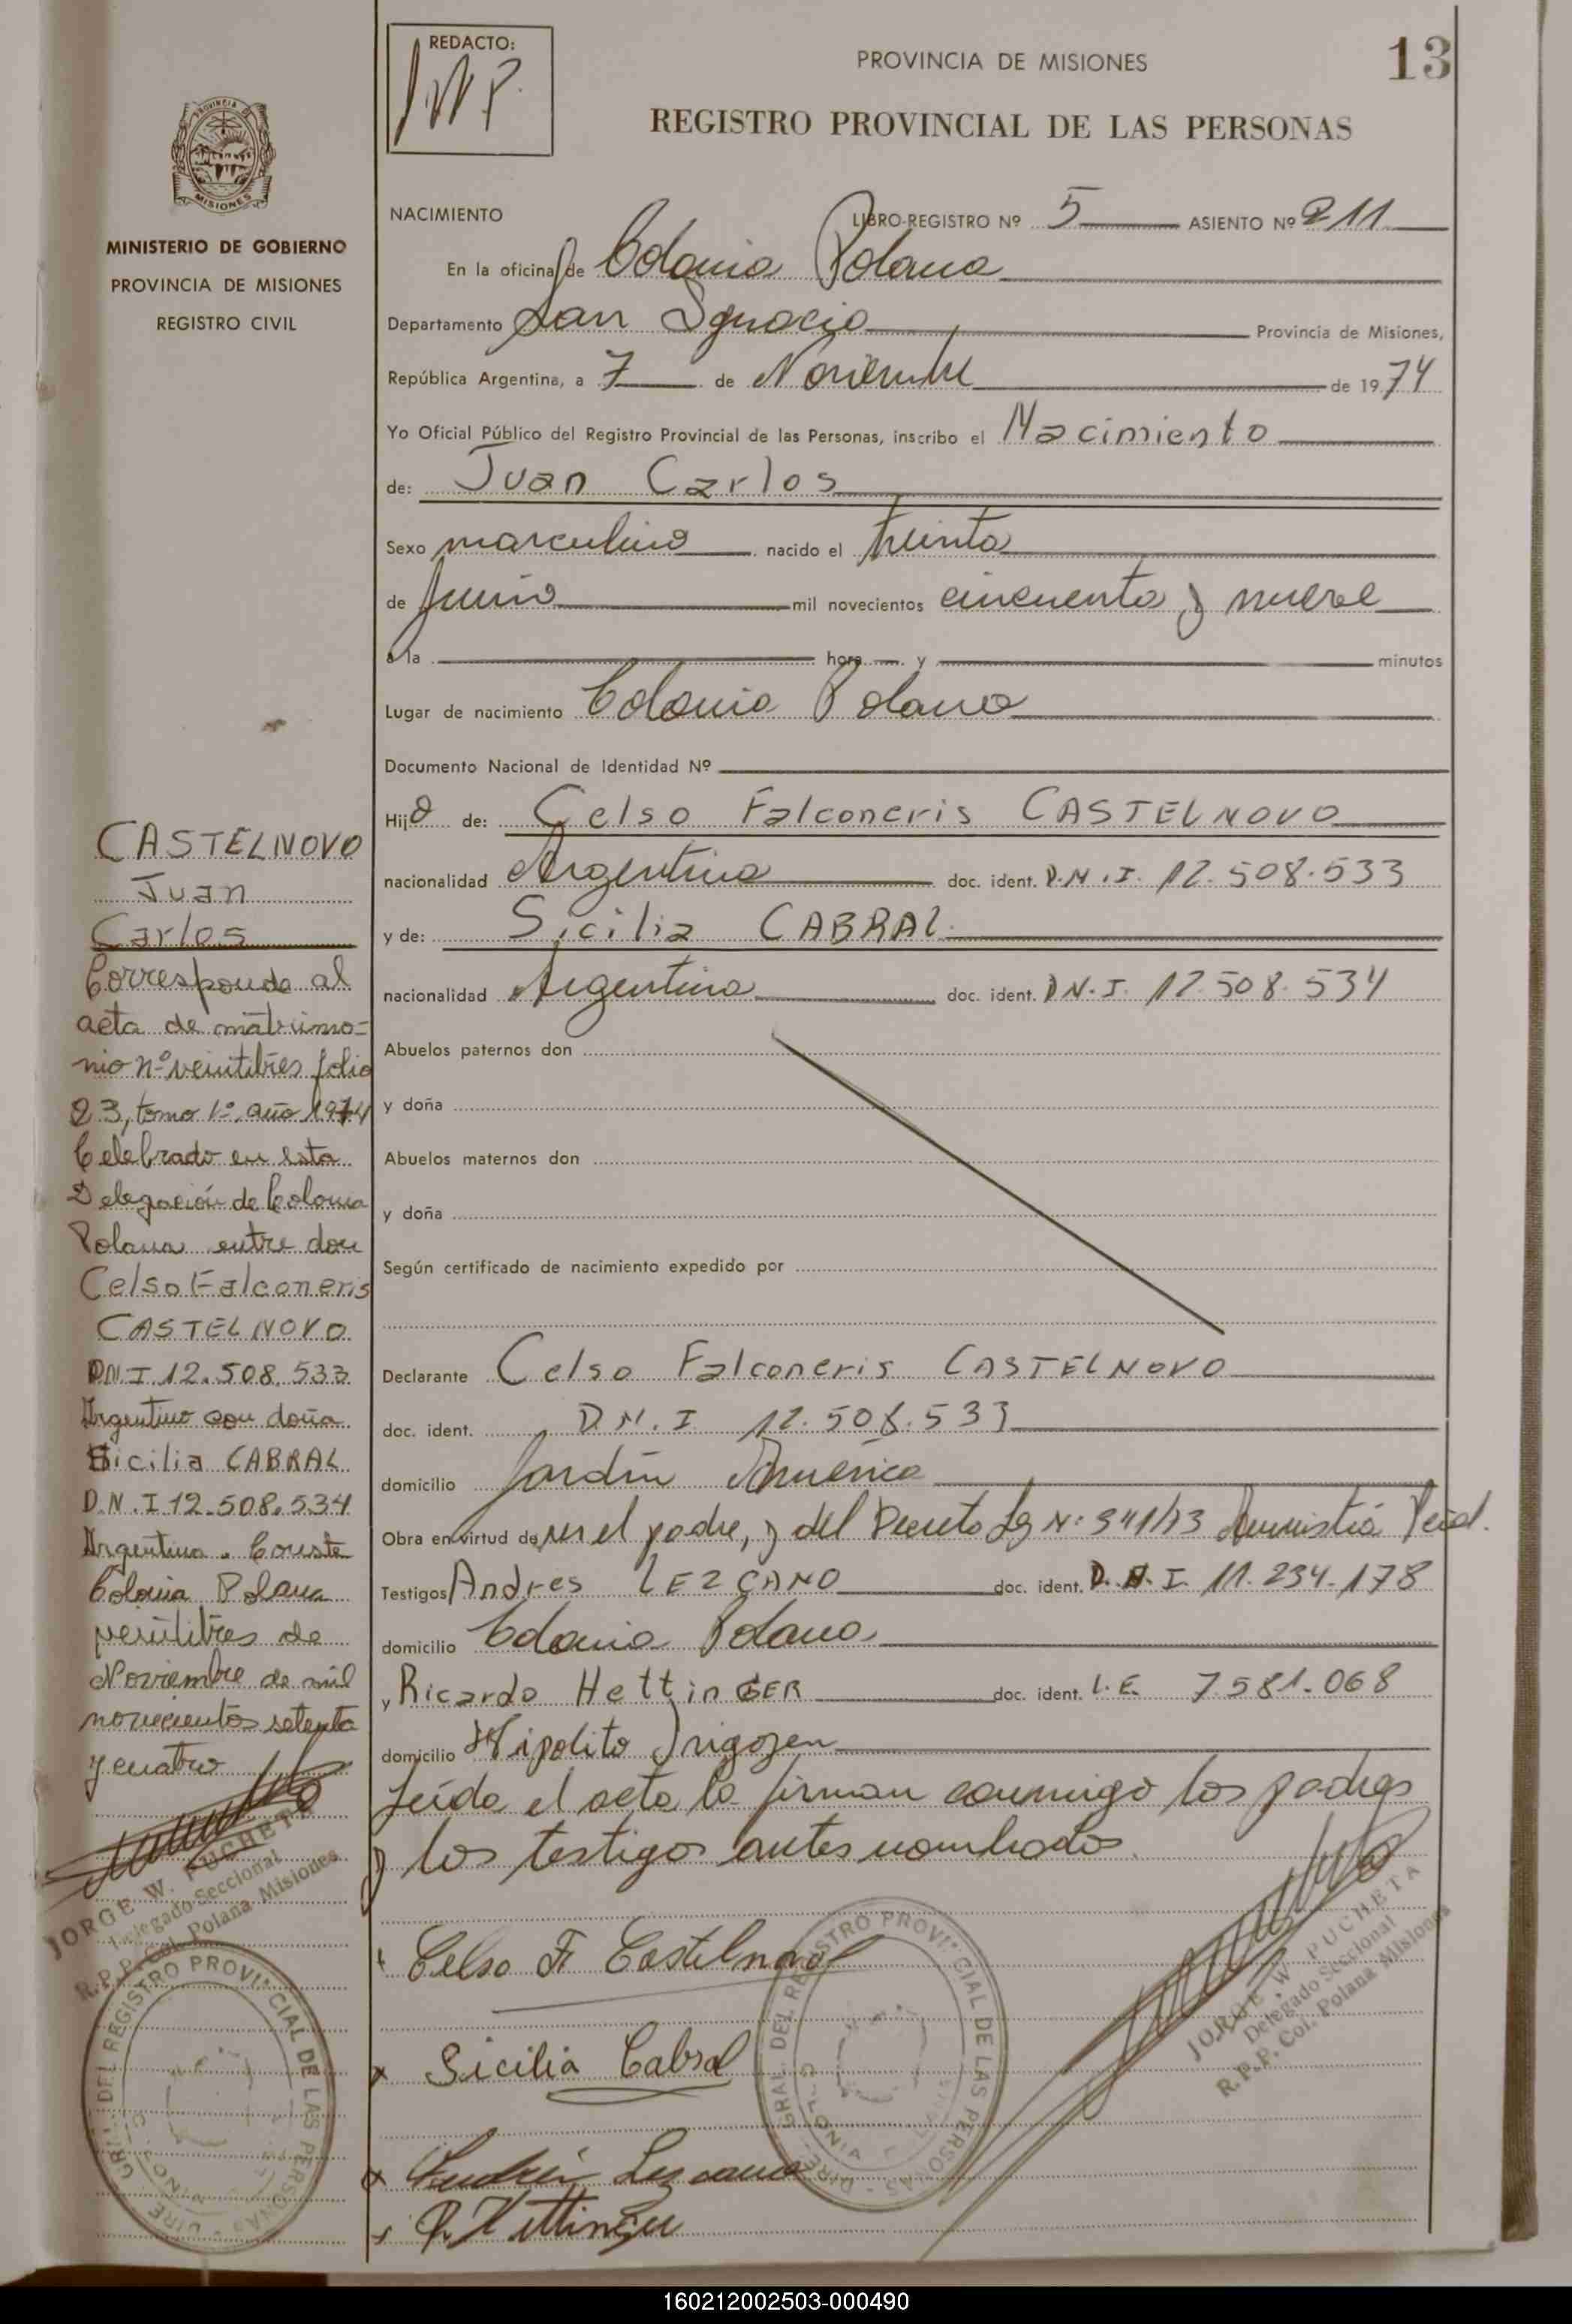 REDACTO:
PROVINCIA DE MISIONES
13
REGISTRO PROVINCIAL DE LAS PERSONAS
MINISTERIO DE GOBIERNO
PROVINCIA DE MISIONES
REGISTRO CIVIL
NACIMIENTO LIBRO-REGISTRO Nº 5 ASIENTO Nº 211
En la oficina de Colonia Polana
Departamento San Ignacio Provincia de Misiones,
República Argentina, a 7 de Noviembre de 1974
Yo Oficial Público del Registro Provincial de las Personas, inscribo el Nacimiento
de: Juan Carlos
Sexo masculino nacido el treinta
de Junio mil novecientos cincuenta y nueve
a la hora y minutos
Lugar de nacimiento Colonia Polana
Documento Nacional de Identidad Nº
Hijo de: Celso Falconeris CASTELNOVO
nacionalidad Argentina doc. ident. D.N.I. 12.508.533
y de: Sicilia CABRAL
nacionalidad Argentina doc. ident. D.N.I. 12.508.534
Abuelos paternos don
y doña
Abuelos maternos don
y doña
Según certificado de nacimiento expedido por
Declarante Celso Falconeris CASTELNOVO
doc. ident. D.N.I 12.508.533
domicilio Jardín América
Obra en virtud de ser el padre, y del Decreto Ley Nº 341/73
Testigos Andres LEZCANO doc. ident. D.N.I. 11.234.178
domicilio Colonia Polana
y Ricardo HettinGER doc. ident. L.E. 7.581.068
domicilio Hipolito Irigoyen
Leída el acta la firman conmigo los padres
y los testigos antes nombrados.
Celso F. Castelnovo
Sicilia Cabral
Andrés Lezcano
R. Hettinger
JORGE W. PUCHETA
Delegado Seccional
R.P.P. Col. Polana Misiones
DIRE GRAL. DEL REGISTRO PROVINCIAL DE LAS PERSONAS
COLONIA
CASTELNOVO
Juan
Carlos
Corresponde al
acta de matrimo=
nio nº veintitres folio
23, tomo 1º año 1974
Celebrado en esta
Delegación de Colonia
Polana entre don
Celso Falconeris
CASTELNOVO
D.N.I 12.508.533
Argentino con doña
Sicilia CABRAL
D.N.I 12.508.534
Argentina. Conste
Colonia Polana
veintitres de
Noviembre de mil
novecientos setenta
y cuatro
JORGE W. PUCHETA
Delegado Seccional
R.P.P. Col. Polana Misiones
DIRE GRAL. DEL REGISTRO PROVINCIAL DE LAS PERSONAS
160212002503-000490